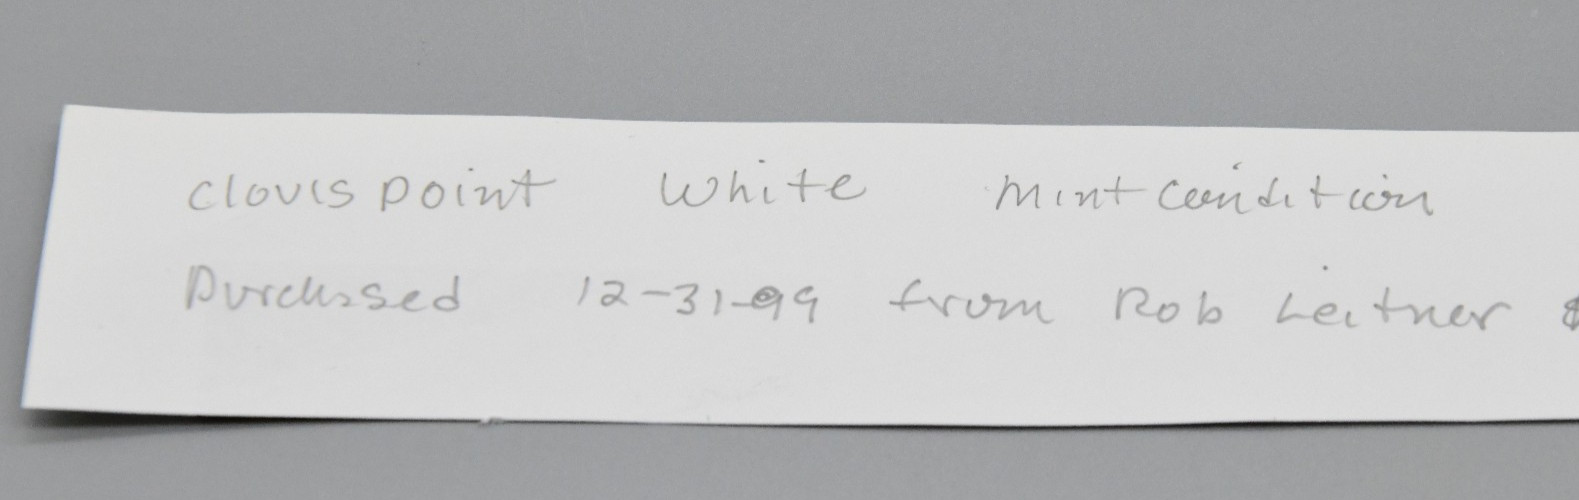 Clovis point White Mint condition
Purchased 12-31-99 from Rob Leitner $